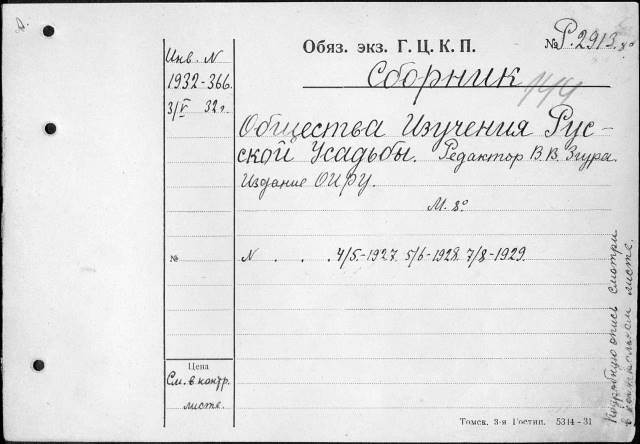 Обяз. экз. Г. Ц. К. П.
№ Р. 2913. 8°
Инв. N
1932-366.
3/V 32 г.
Сборник
144
Общества Изучения Рус-
ской Усадьбы. Редактор В. В. Згура.
Издание ОИРУ.
М. 8°
№
N . . . 4/5-1927. 5/6-1928. 7/8-1929.
Цена
См. в контр.
листе.
Подробную опись смотри
в контрольном листе.
Томск. 3-я Гостип. 5314-31